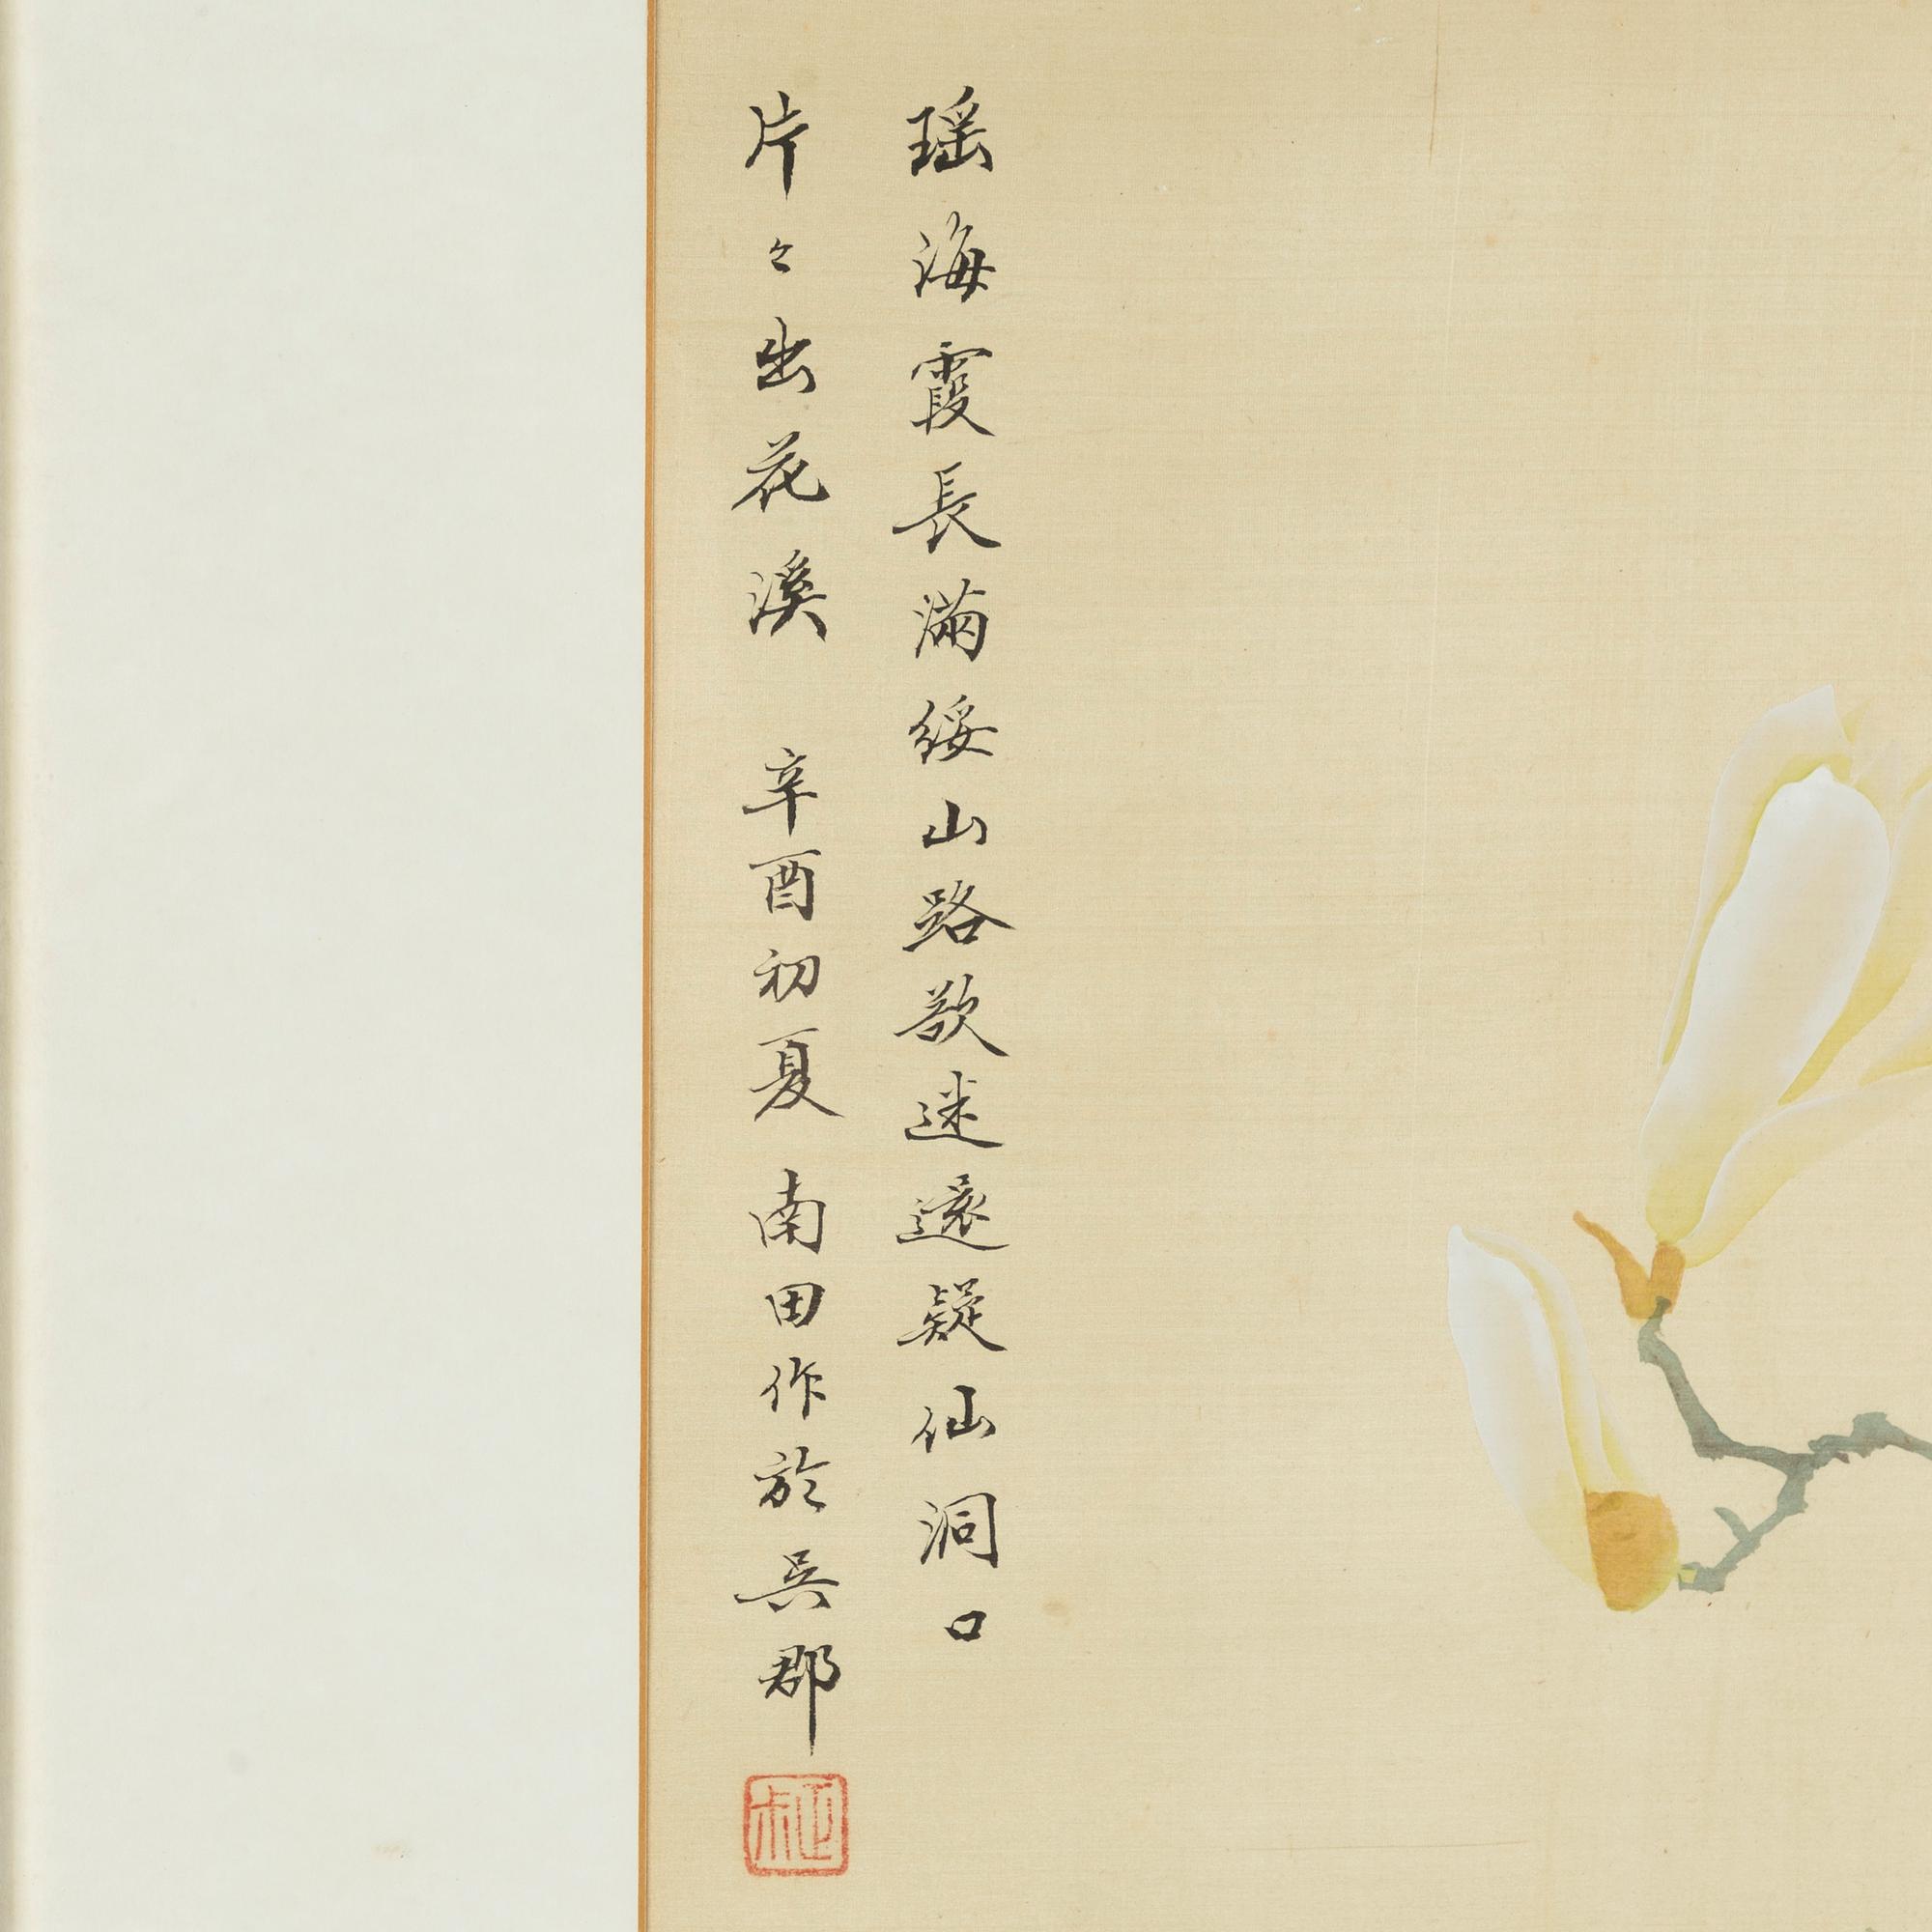 瑶海霞長滿綏山路欲迷還疑仙洞口
片々出花溪 辛酉初夏 南田作於吳郡
正叔